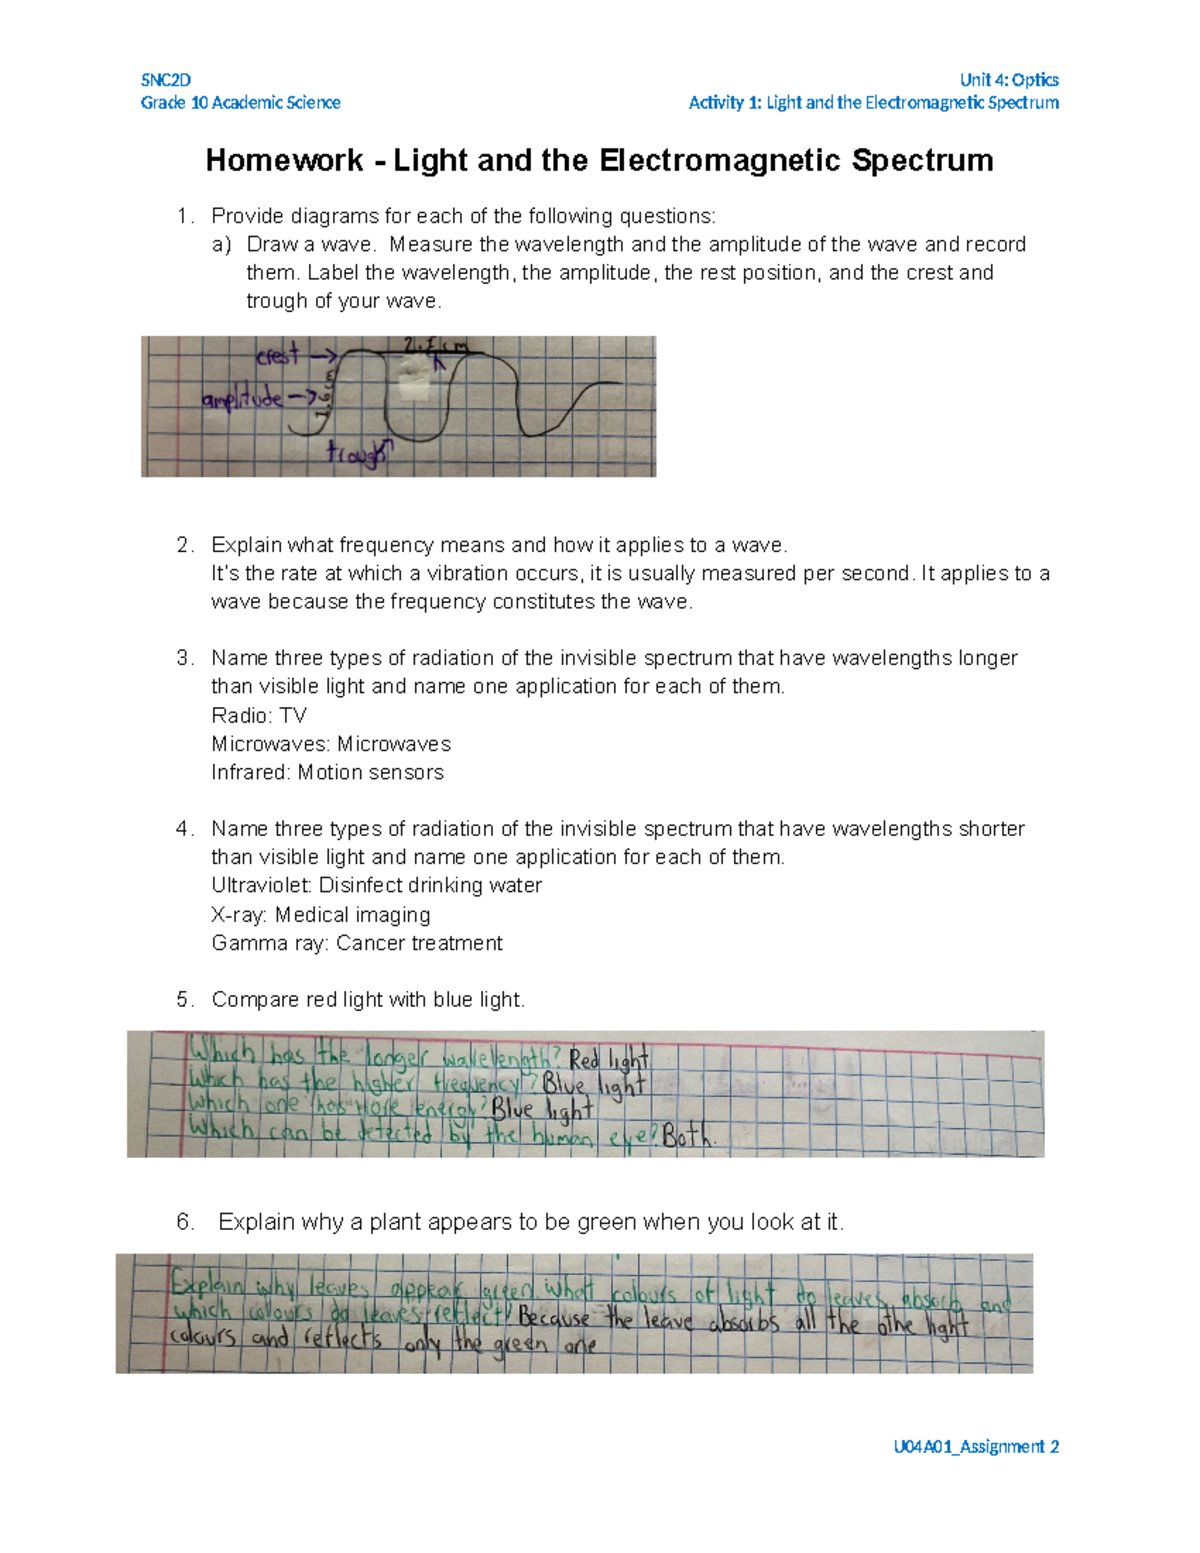 SNC2D Unit 4: Optics
Grade 10 Academic Science Activity 1: Light and the Electromagnetic Spectrum
Homework - Light and the Electromagnetic Spectrum
1. Provide diagrams for each of the following questions:
a) Draw a wave. Measure the wavelength and the amplitude of the wave and record
them. Label the wavelength, the amplitude, the rest position, and the crest and
trough of your wave.
crest
amplitude
1.6cm
trough
2. Explain what frequency means and how it applies to a wave.
It's the rate at which a vibration occurs, it is usually measured per second. It applies to a
wave because the frequency constitutes the wave.
3. Name three types of radiation of the invisible spectrum that have wavelengths longer
than visible light and name one application for each of them.
Radio: TV
Microwaves: Microwaves
Infrared: Motion sensors
4. Name three types of radiation of the invisible spectrum that have wavelengths shorter
than visible light and name one application for each of them.
Ultraviolet: Disinfect drinking water
X-ray: Medical imaging
Gamma ray: Cancer treatment
5. Compare red light with blue light.
Which has the longer wavelength? Red light
Which has the higher frequency? Blue light
Which one has more energy? Blue light
Which can be detected by the human eye? Both.
6. Explain why a plant appears to be green when you look at it.
Explain why leaves appear green. What colours of light do leaves absorb and
which colours do leaves reflect? Because the leave absorbs all the othe light
colours and reflects only the green one
U04A01_Assignment 2